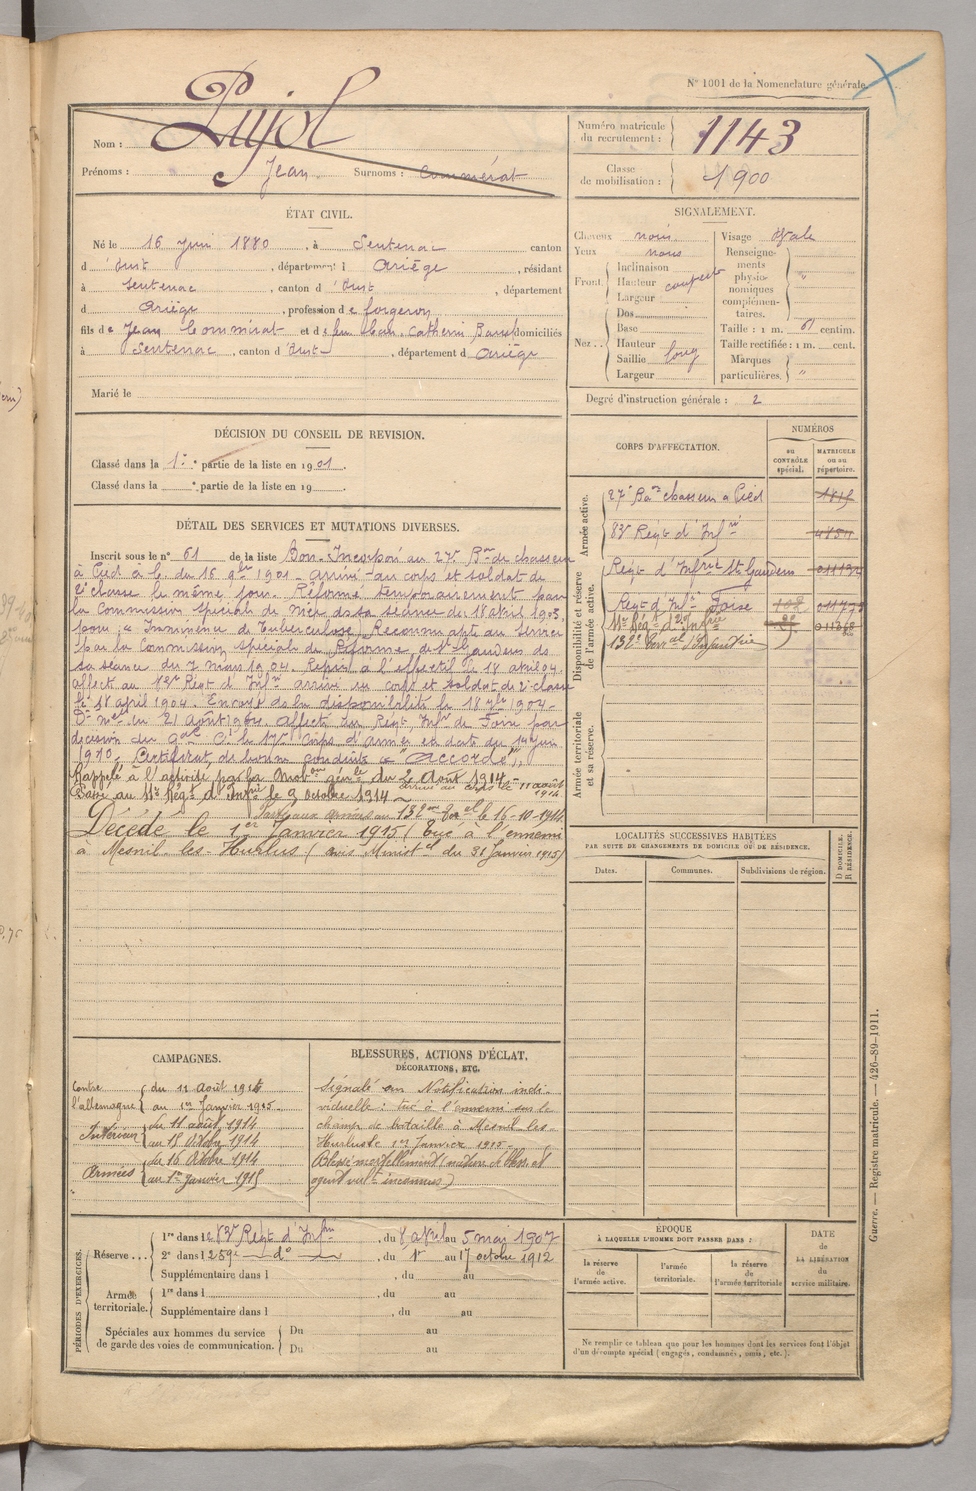 N° 1001 de la Nomenclature générale.
Nom : Pujol
Prénoms : Jean Surnoms : Commérat
Numéro matricule du recrutement : 1143
Classe de mobilisation : 1900
ÉTAT CIVIL.
Né le 16 juin 1880, à Sentenac canton
d'Oust, département d Ariège, résidant
à Sentenac, canton d'Oust, département
d Ariège, profession de forgeron
fils de Jean Commérat et de feu Catherine domiciliés
à Sentenac, canton d'Oust, département d Ariège
Marié le
SIGNALEMENT.
Cheveux noirs Visage Ovale
Yeux noirs Renseignements physionomiques complémentaires. "
Front Inclinaison
Hauteur
Largeur
Nez Dos
Base
Hauteur
Saillie long
Largeur
Taille : 1 m. 61 centim.
Taille rectifiée : 1 m. cent.
Marques particulières. "
Degré d'instruction générale : 2
DÉCISION DU CONSEIL DE REVISION.
Classé dans la 1re partie de la liste en 1901.
Classé dans la partie de la liste en 19
DÉTAIL DES SERVICES ET MUTATIONS DIVERSES.
Inscrit sous le n° 61 de la liste Bon. Incorporé au 27e Bon de chasseurs
à Pied à c. du 16 9bre 1901 arrivé au corps et soldat de
2e classe le même jour. Réformé temporairement par
la Commission spéciale de Nice dans sa séance du 18 avril 1903
pour "Imminence de Tuberculose". Reconnu apt au service
par la Commission spéciale de Réforme de St Gaudens de
sa séance du 7 mars 1904. Repris à l'effectif le 18 avril 04
affecté au 83e Régt d'Infie arrivé au corps et soldat de 2e classe
le 18 avril 1904. Envoyé dans la disponibilité le 18 7bre 1904.
en 21 Août 1904. Affecté au Régt Infie de Foix par
décision du Gal Ct le 17e Corps d'armée en date du 14 juin
1910. Certificat de bonne conduite "Accordé"
Rappelé à l'activité par la Mobon génle du 2 Août 1914 arrivé au corps le 11 août 1914
Passé au 11e Régt d'Infie le 9 octobre 1914
Parti aux armées au 132me Ter el le 16-10-1914
Décédé le 1er Janvier 1915 (tué à l'ennemi
à Mesnil-les-Hurlus (avis Minist el du 31 Janvier 1915)
CORPS D'AFFECTATION.
NUMÉROS
AU CONTRÔLE spécial.
MATRICULE ou au répertoire.
Armée active.
27e Bon chasseurs à Pied 1815
83e Régt d'Infie
Disponibilité et réserve de l'armée active.
Régt d'Infrie St Gaudens
Régt d'Infie Foix
11e Régt d'Infrie
Armée territoriale et sa réserve.
LOCALITÉS SUCCESSIVES HABITÉES
PAR SUITE DE CHANGEMENTS DE DOMICILE OU DE RÉSIDENCE.
Dates. Communes. Subdivisions de région. D DOMICILE. R RÉSIDENCE.
CAMPAGNES.
Contre l'allemagne du 11 Août 1914
au 1er Janvier 1915.
Intérieur du 11 août 1914
au 15 Octobre 1914
Armées du 16 Octobre 1914
au 1er Janvier 1915
BLESSURES, ACTIONS D'ÉCLAT,
DÉCORATIONS, ETC.
Signalé sur Notification indi-
viduelle : tué à l'ennemi sur le
champ de bataille à Mesnil-les-
Hurlus le 1er Janvier 1915-
Blessé mortellement (nature de bless. et
agent vult inconnus)
PÉRIODES D'EXERCICES.
Réserve ... 1re dans le 83e Regt d'Infie, du 8 avril au 5 mai 1907
2e dans l 259e do, du 1r au 17 octobre 1912
Supplémentaire dans l , du au
Armée territoriale. 1re dans l , du au
Supplémentaire dans l , du au
Spéciales aux hommes du service de garde des voies de communication. Du au
Du au
ÉPOQUE
À LAQUELLE L'HOMME DOIT PASSER DANS :
la réserve de l'armée active. l'armée territoriale. la réserve de l'armée territoriale
DATE de LA LIBÉRATION du service militaire.
Ne remplir ce tableau que pour les hommes dont les services font l'objet
d'un décompte spécial (engagés, condamnés, omis, etc.).
Guerre. — Registre matricule. — 426-89-1911.